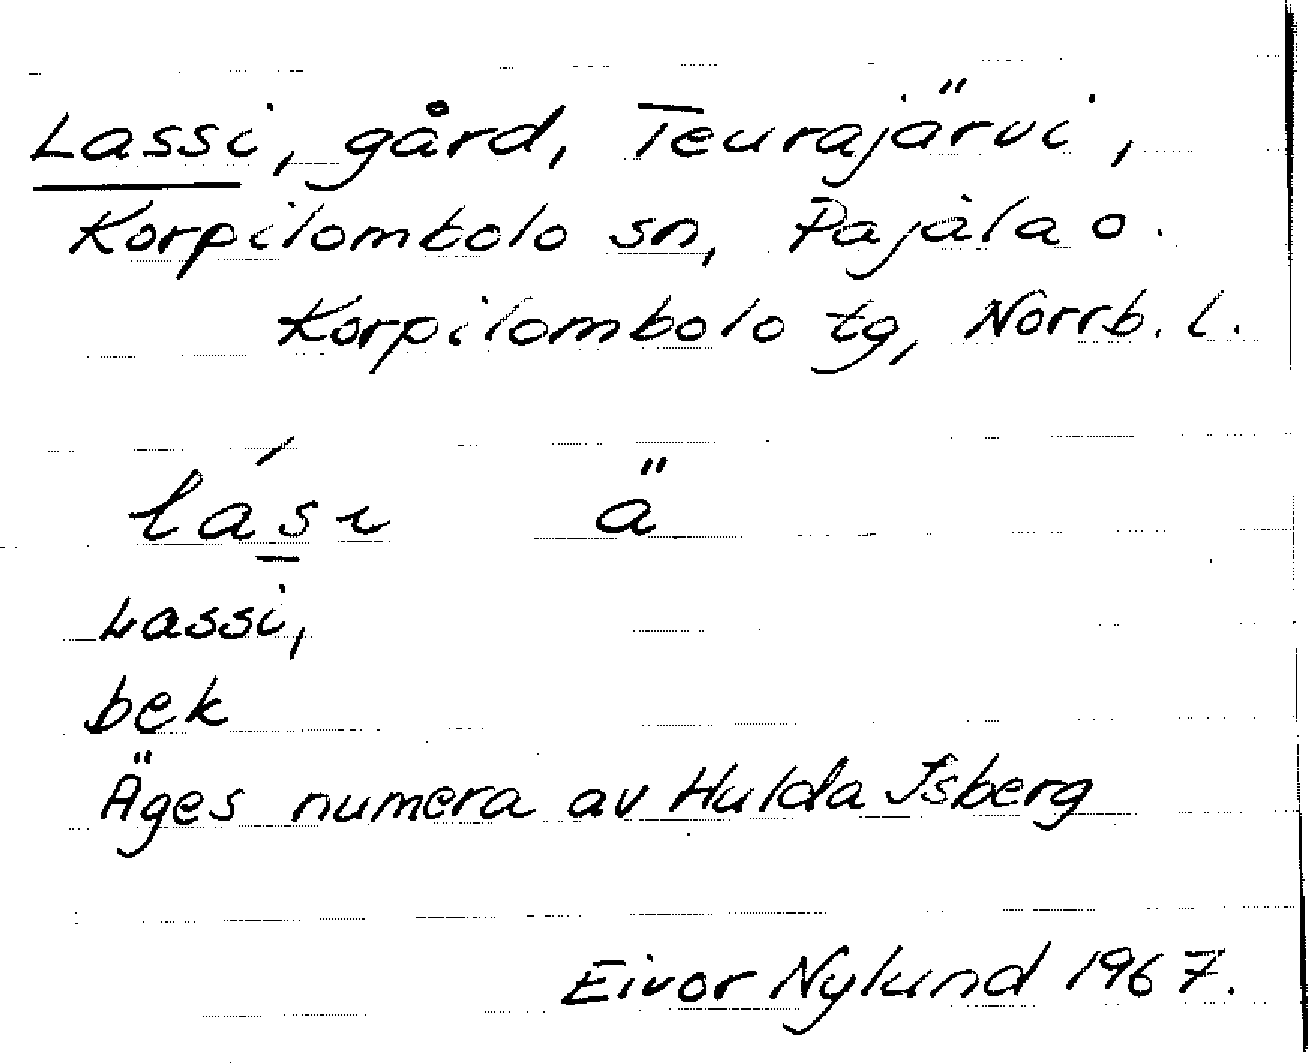 Lassi, gård, Teurajärvi,
Korpilombolo sn, Pajala o.
Korpilombolo tg, Norrb. l.
ä
Lassi,
bek
Äges numera av Hulda Isberg
Eivor Nylund 1967.